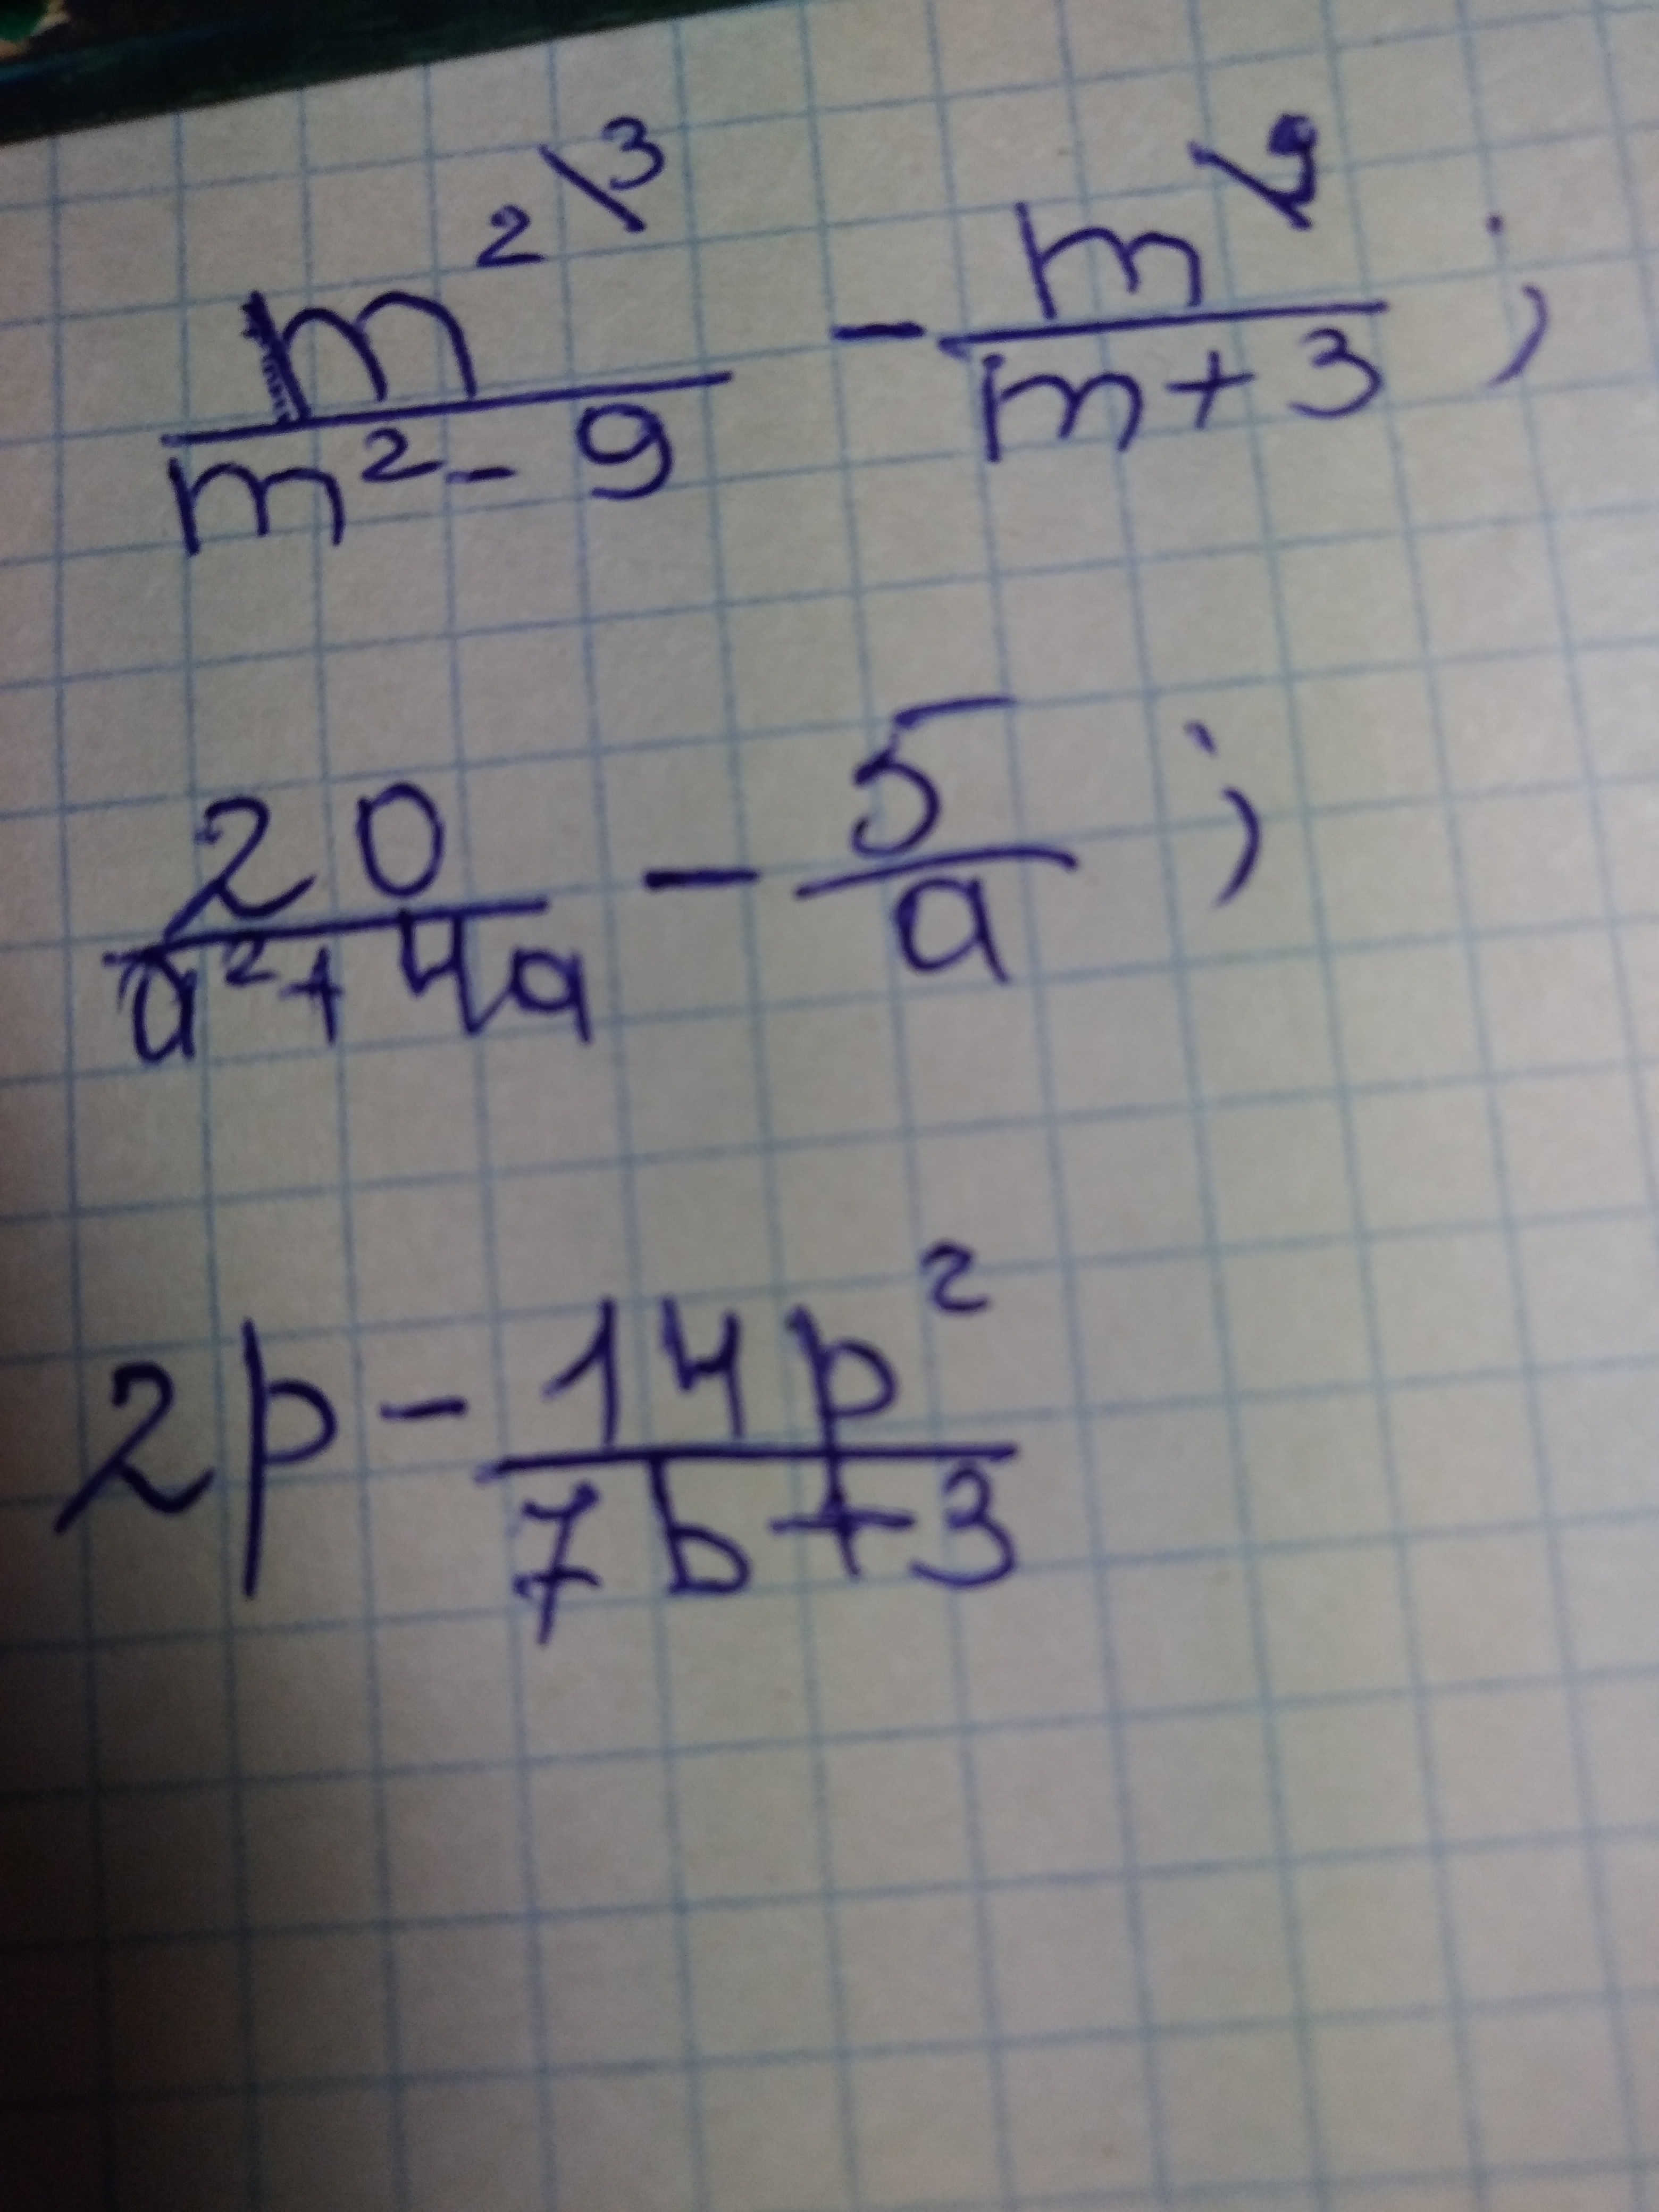 m² \3 / m² - 9 - m \9 / m + 3 ;
20 / a² + 4a - 5 / a ;
2p - 14p² / 7b + 3